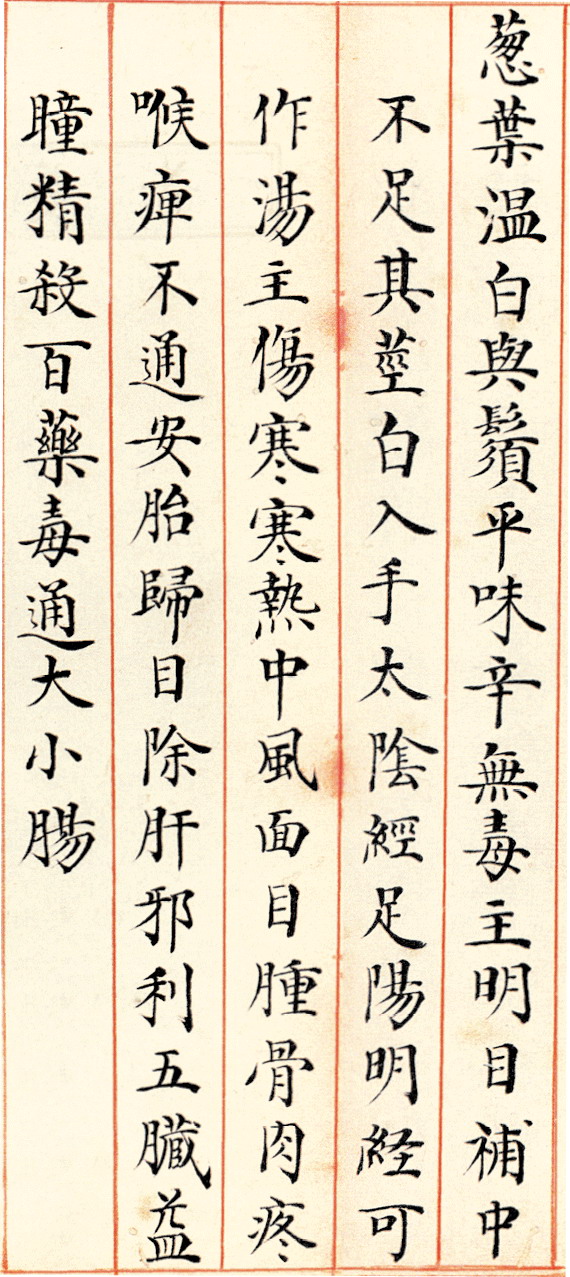 葱葉温白與鬚平味辛無毒主明目補中
不足其莖白入手太陰經足陽明経可
作湯主傷寒寒熱中風面目腫骨肉疼
喉痺不通安胎歸目除肝邪利五臓益
瞳精殺百藥毒通大小腸